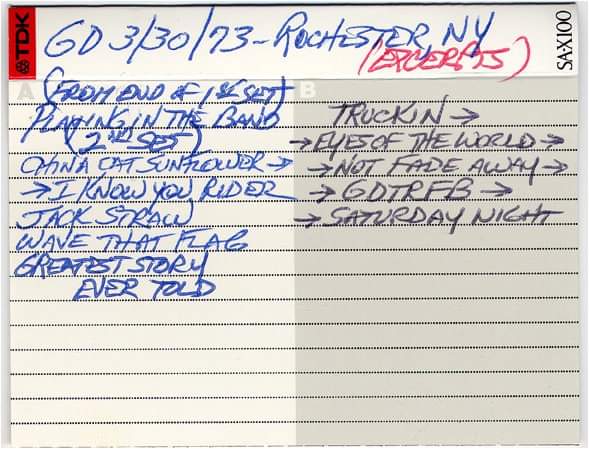 TDK
GD 3/30/73 - ROCHESTER, NY
(EXCERPTS)
SA-X100
A
(FROM END OF 1ST SET)
PLAYING IN THE BAND
(2ND SET)
CHINA CAT SUNFLOWER →
→ I KNOW YOU RIDER
JACK STRAW
WAVE THAT FLAG
GREATEST STORY
EVER TOLD
B
TRUCKIN →
→ EYES OF THE WORLD →
→ NOT FADE AWAY →
→ GDTRFB →
→ SATURDAY NIGHT